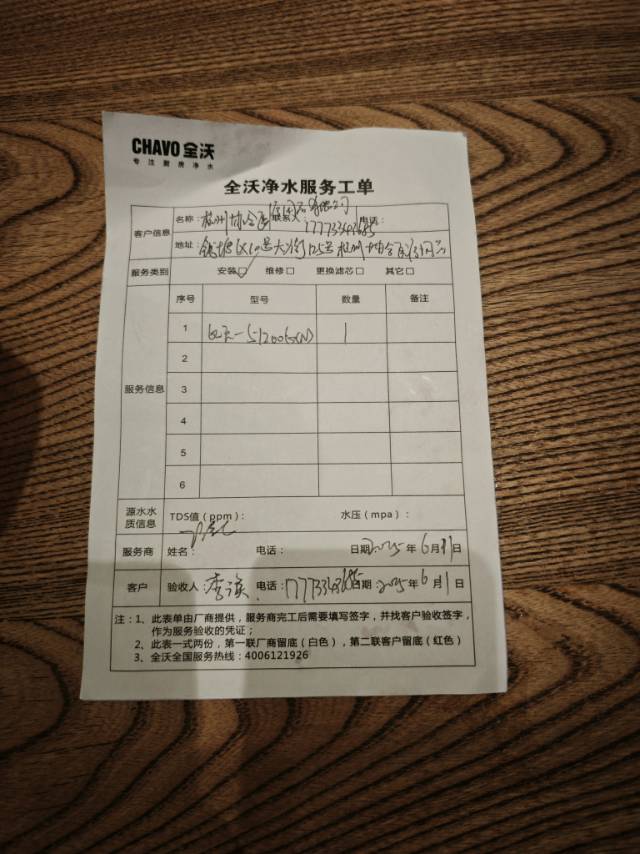 CHAVO 全沃
专注厨房净水
全沃净水服务工单
客户信息
名称： 杭州协合医 有限公司 联系人： 17773343685 电话：
地址： 钱塘区10号大街 号 杭州协合医
服务类别 安装☑ 维修□ 更换滤芯□ 其它□
服务信息
序号 型号 数量 备注
1 1
2
3
4
5
6
源水水质信息 TDS值（ppm）： 水压（mpa）：
服务商 姓名： 电话： 日期：2025年6月11日
客户 验收人： 电话：17773343685 日期：2025年6月11日
注：1、此表单由厂商提供，服务商完工后需要填写签字，并找客户验收签字，
作为服务验收的凭证；
2、此表一式两份，第一联厂商留底（白色），第二联客户留底（红色）
3、全沃全国服务热线：4006121926